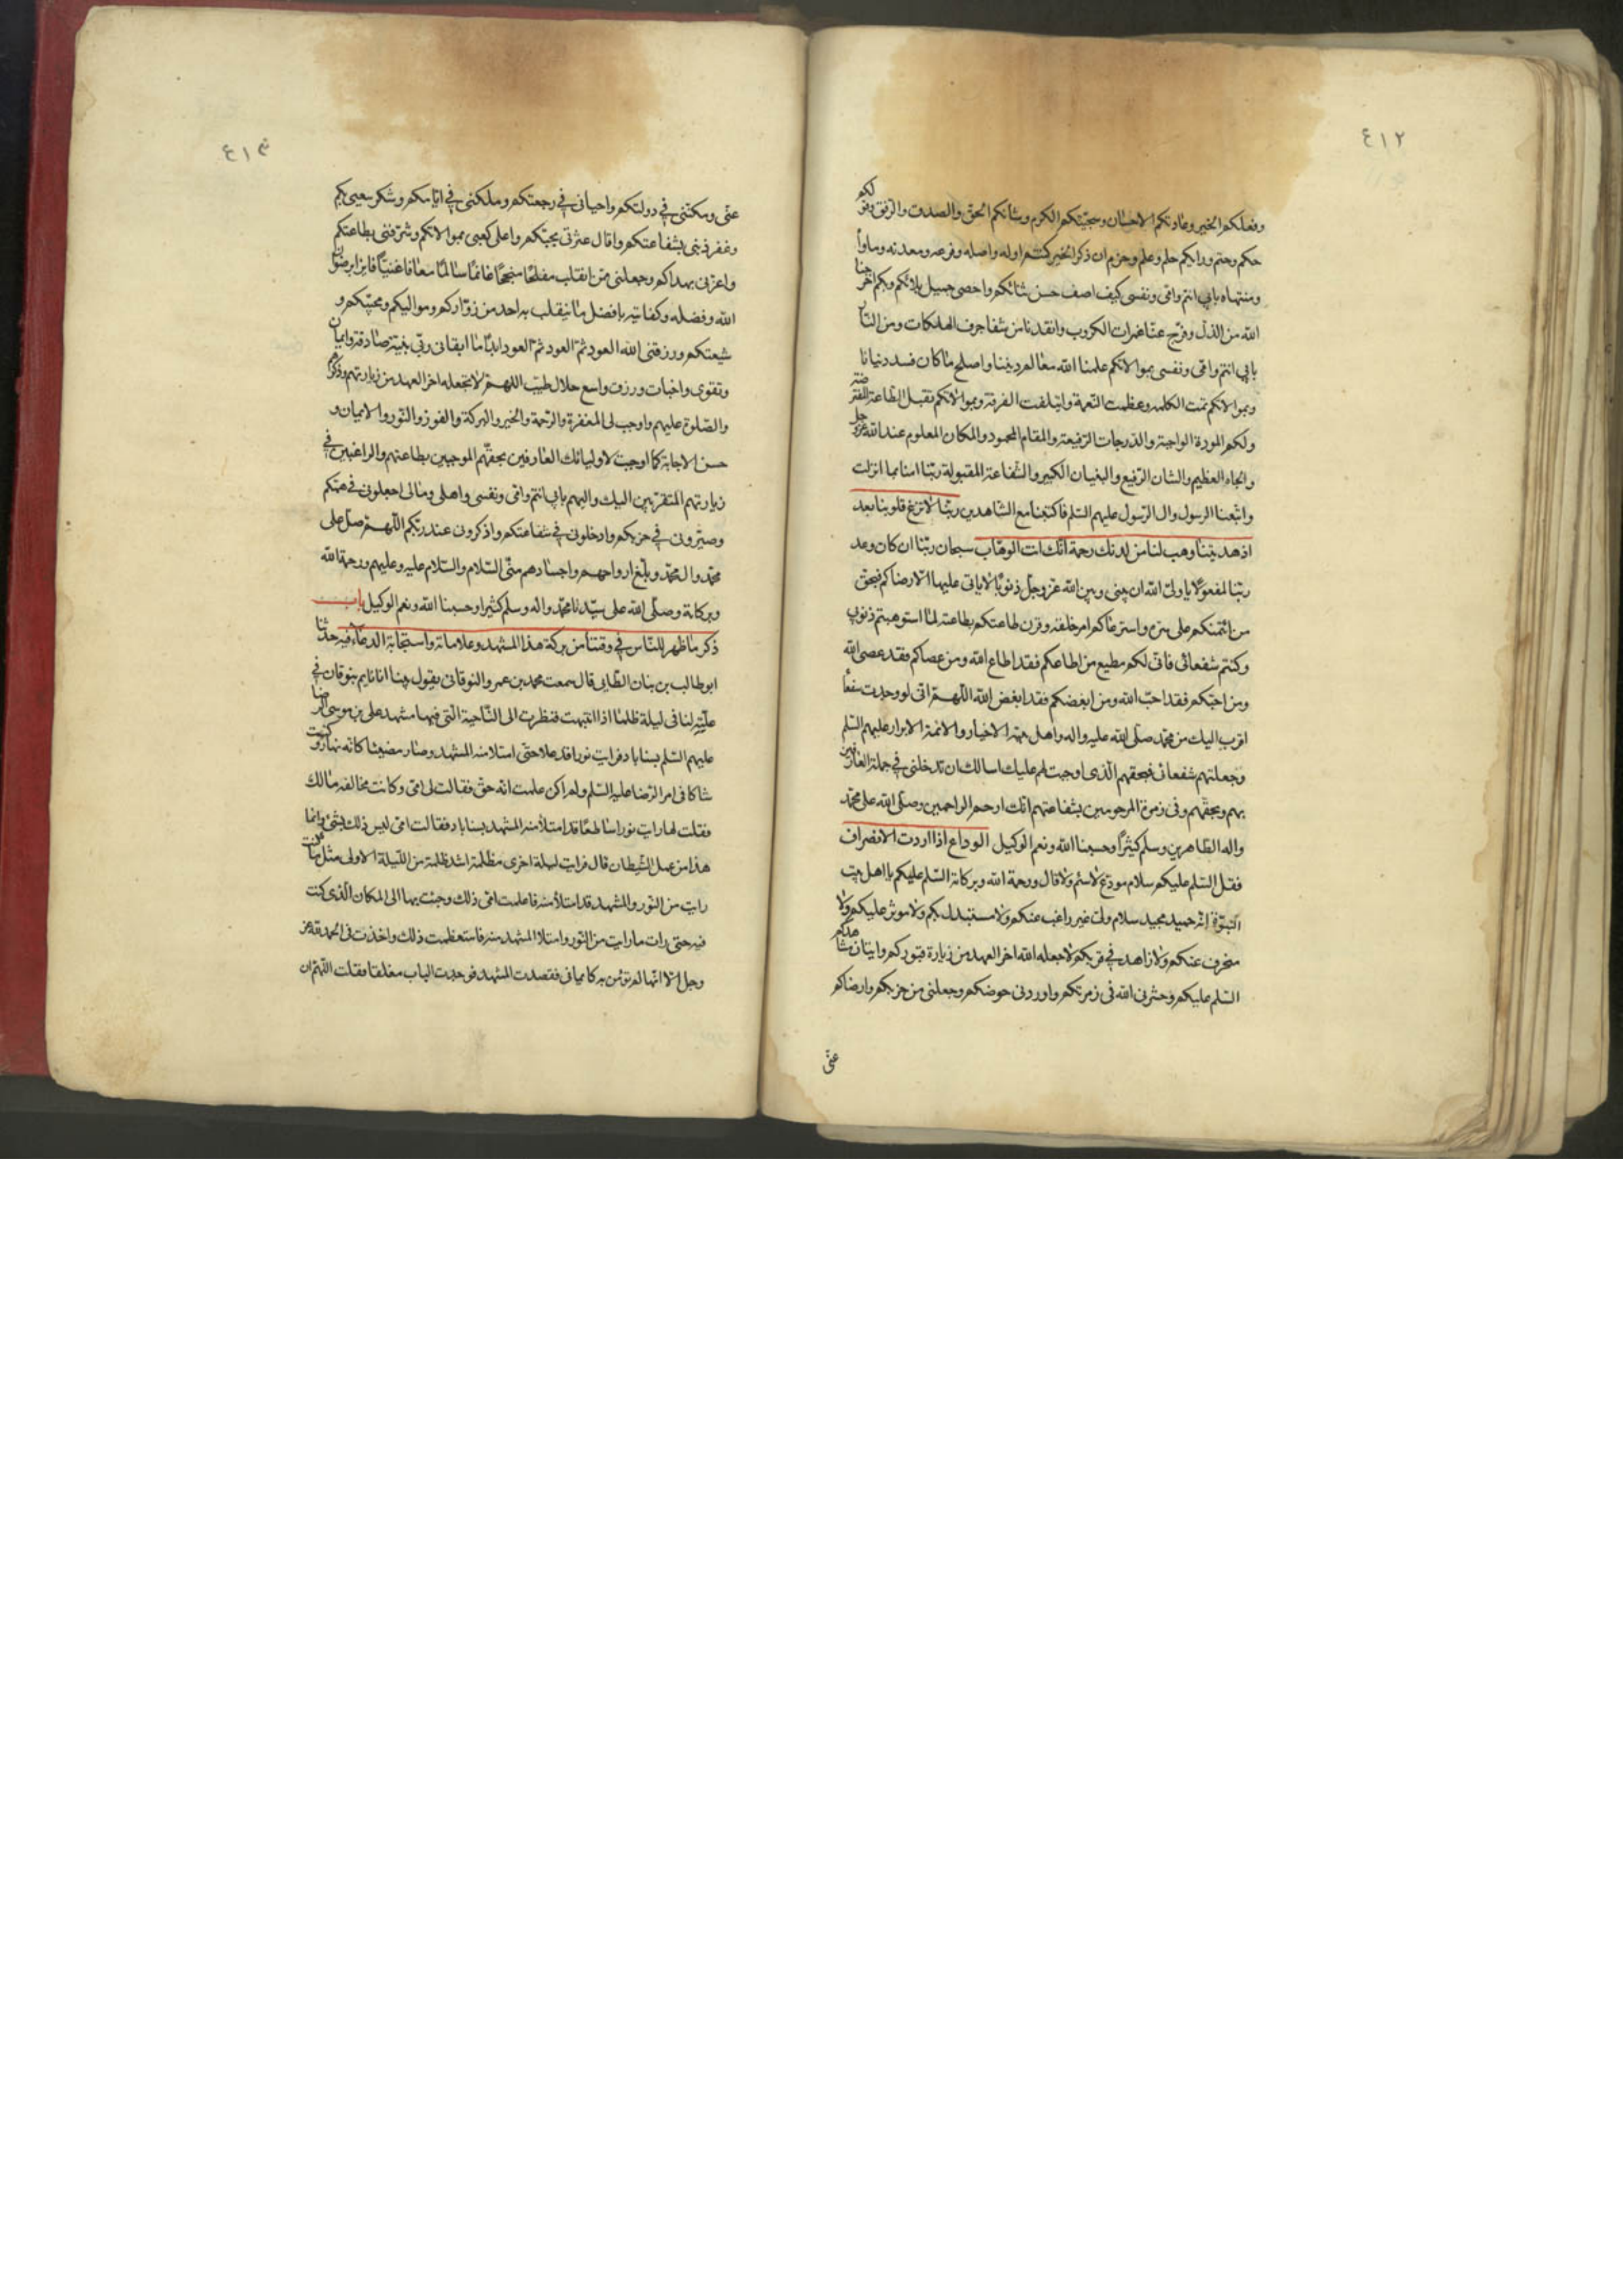 ٤١٢
وفعلكم الخير وعادتكم الاحسان وسجيتكم الكرم وشأنكم الحق والصدق والرفق وقولكم
حكم وحتم ورايكم حلم وعلم وحزم ان ذكر الخير كنتم اوله واصله وفرعه ومعدنه وماواه
ومنتهاه بابي انتم وامى ونفسى كيف اصف حسن ثنائكم واحصى جميل بلائكم وبكم اخرجنا
الله من الذل وفرج عنا غمرات الكروب وانقذنا من شفا جرف الهلكات ومن النار
بابي انتم وامى ونفسى بموالاتكم علمنا الله معالم ديننا واصلح ما كان فسد دنيانا
وبموالاتكم تمت الكلمة وعظمت النعمة وائتلفت الفرقة وبموالاتكم تقبل الطاعة المفترضة
ولكم المودة الواجبة والدرجات الرفيعة والمقام المحمود والمكان المعلوم عند الله عز وجل
والجاه العظيم والشان الرفيع والبغيان الكبير والشفاعة المقبولة ربنا امنا بما انزلت
واتبعنا الرسول وال الرسول عليهم السلم فاكتبنا مع الشاهدين ربنا لا تزغ قلوبنا بعد
اذ هديتنا وهب لنا من لدنك رحمة انك انت الوهاب سبحان ربنا ان كان وعد
ربنا لمفعولا يا ولى الله ان بينى وبين الله عز وجل ذنوبا لا ياتى عليها الا رضاكم فبحق
من ائتمنكم على سره واسترعاكم امر خلقه وقرن طاعتكم بطاعته لما استوهبتم ذنوبى
وكنتم شفعائى فانى لكم مطيع من اطاعكم فقد اطاع الله ومن عصاكم فقد عصى الله
ومن احبكم فقد احب الله ومن ابغضكم فقد ابغض الله اللهم انى لو وجدت شفعاء
اقرب اليك من محمد صلى الله عليه واله واهل بيته الاخيار والائمة الابرار عليهم السلم
وجعلتهم شفعائى فبحقهم الذى اوجبت لهم عليك اسالك ان تدخلنى فى جملة العارفين
بهم وبحقهم وفى زمرة المرحومين بشفاعتهم انك ارحم الراحمين وصلى الله على محمد
واله الطاهرين وسلم كثيرا وحسبنا الله ونعم الوكيل الوداع اذا اردت الانصراف
فقل السلم عليكم سلام مودع لا سئم ولا قال ورحمة الله وبركاته السلم عليكم يا اهل بيت
النبوة انه حميد مجيد سلام ولى غير راغب عنكم ولا مستبدل بكم ولا موثر عليكم ولا
منحرف عنكم ولا زاهد فى قربكم لا جعله الله اخر العهد من زيارة قبوركم واتيان مشاهدكم
السلم عليكم وحشرنى الله فى زمرتكم واوردنى حوضكم وجعلنى من حزبكم وارضاكم
عنى
٤١٣
عنى ومكننى فى دولتكم واحيانى فى رجعتكم وملكنى فى ايامكم وشكر سعيى بكم
وغفر ذنبى بشفاعتكم واقال عثرتى بمحبتكم واعلى كعبى بموالاتكم وشرفنى بطاعتكم
واعزنى بهداكم وجعلنى ممن انقلب مفلحا منجحا غانما سالما معافا غنيا فايزا برضوان
الله وفضله وكفايته بافضل ما ينقلب به احد من زواركم ومواليكم ومحبيكم و
شيعتكم ورزقنى الله العود ثم العود ثم العود ابدا ما ابقانى ربى بنية صادقة وايمان
وتقوى واخبات ورزق واسع حلال طيب اللهم لا تجعله اخر العهد من زيارتهم وذكرهم
والصلوة عليهم واوجب لى المغفرة والرحمة والخير والبركة والفوز والنور والايمان و
حسن الاجابة كما اوجبت لاوليائك العارفين بحقهم الموجبين بطاعتهم والراغبين فى
زيارتهم المتقربين اليك واليهم بابى انتم وامى ونفسى واهلى ومالى اجعلونى فى همتكم
وصيرونى فى حزبكم وادخلونى فى شفاعتكم واذكرونى عند ربكم اللهم صل على
محمد وال محمد وبلغ ارواحهم واجسادهم منى السلام والسلام عليه وعليهم ورحمة الله
وبركاته وصلى الله على سيدنا محمد واله وسلم كثيرا وحسبنا الله ونعم الوكيل باب
ذكر ما ظهر للناس فى وقتنا من بركة هذا المشهد وعلاماته واستجابة الدعاء فيه حدثنا
ابو طالب بن بنان الطايى قال سمعت محمد بن عمر والنوقانى يقول بينا انا نايم بنوقان فى
علية لنا فى ليلة ظلماء اذا انتبهت فنظرت الى الناحية التى فيها مشهد على بن موسى الرضا
عليهم السلم بسناباد فرايت نورا قد علا حتى امتلا منه المشهد وصار مضيئا كانه نهار وكنت
شاكا فى امر الرضا عليه السلم ولم اكن علمت انه حق فقالت لى امى وكانت مخالفة مالك
فقلت لها رايت نورا ساطعا قد امتلأ منه المشهد بسناباد فقالت امى ليس ذلك بشئ وانما
هذا من عمل الشيطان قال فرايت ليلة اخرى مظلمة اشد ظلمة من الليلة الاولى مثل ما كنت
رايت من النور والمشهد قد امتلأ منه فاعلمت امى ذلك وجئت بها الى المكان الذى كنت
فيه حتى رات ما رايت من النور وامتلا المشهد منه فاستعظمت ذلك واخذت فى الحمد لله عز
وجل الا انها لم تومن به كايمانى فقصدت المشهد فوجدت الباب مغلقا فقلت اللهم ان